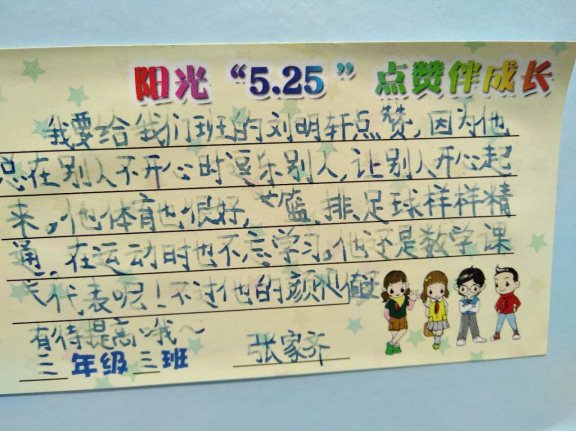 阳光“5.25”点赞伴成长
我要给我们班的刘明轩点赞,因为他
总在别人不开心时逗乐别人,让别人开心起
来,他体育也很好,篮、排、足球样样精
通,在运动时也不忘学习,他还是数学课
代表呢!不过他的颜值
有待提高哦~
三年级三班 张家齐